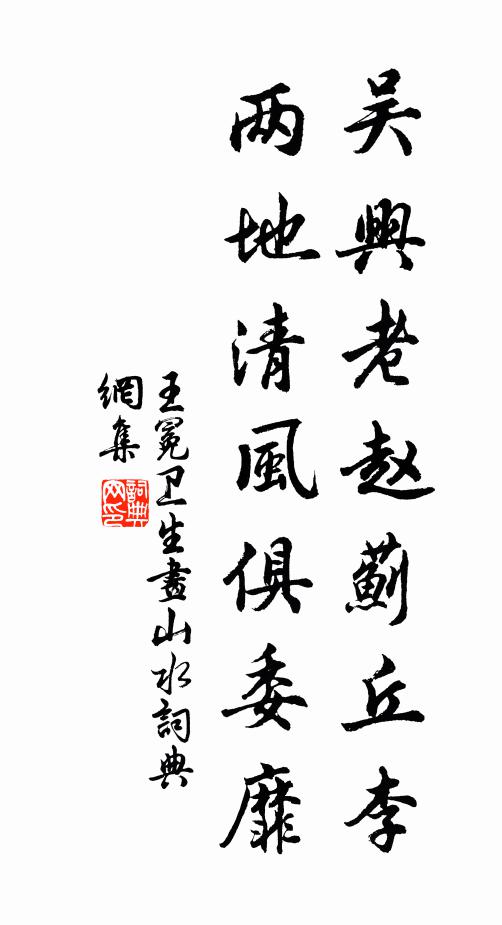 吴興老赵薊丘李
两地清風俱委靡
王冕卫生畫山水詞典
網集
詞典
网印